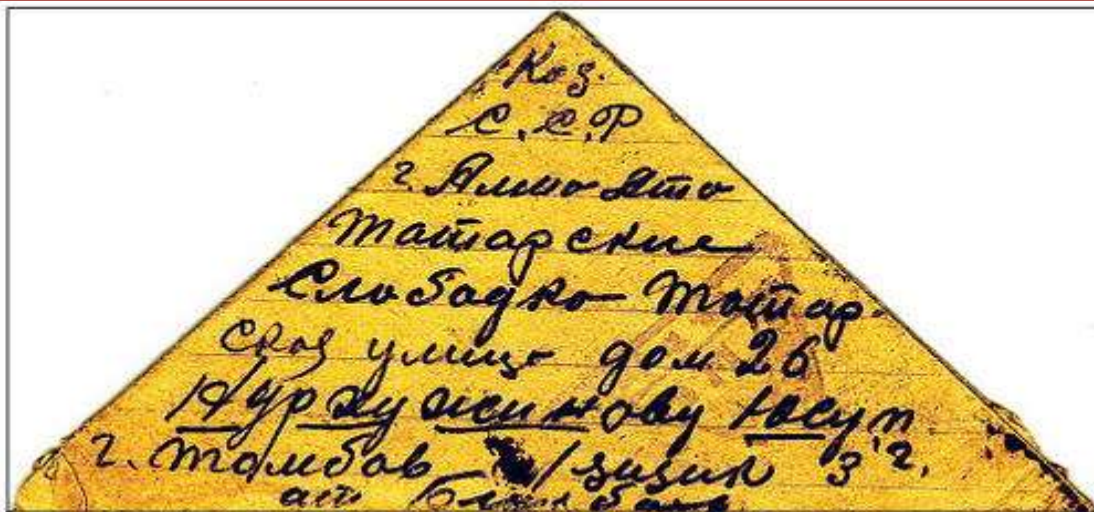 Каз.
С.С.Р
г. Алма Ата
Татарские
Слабадка Татар
ская улица дом 26
Нурхужинову Юсуп
г. Тамбов